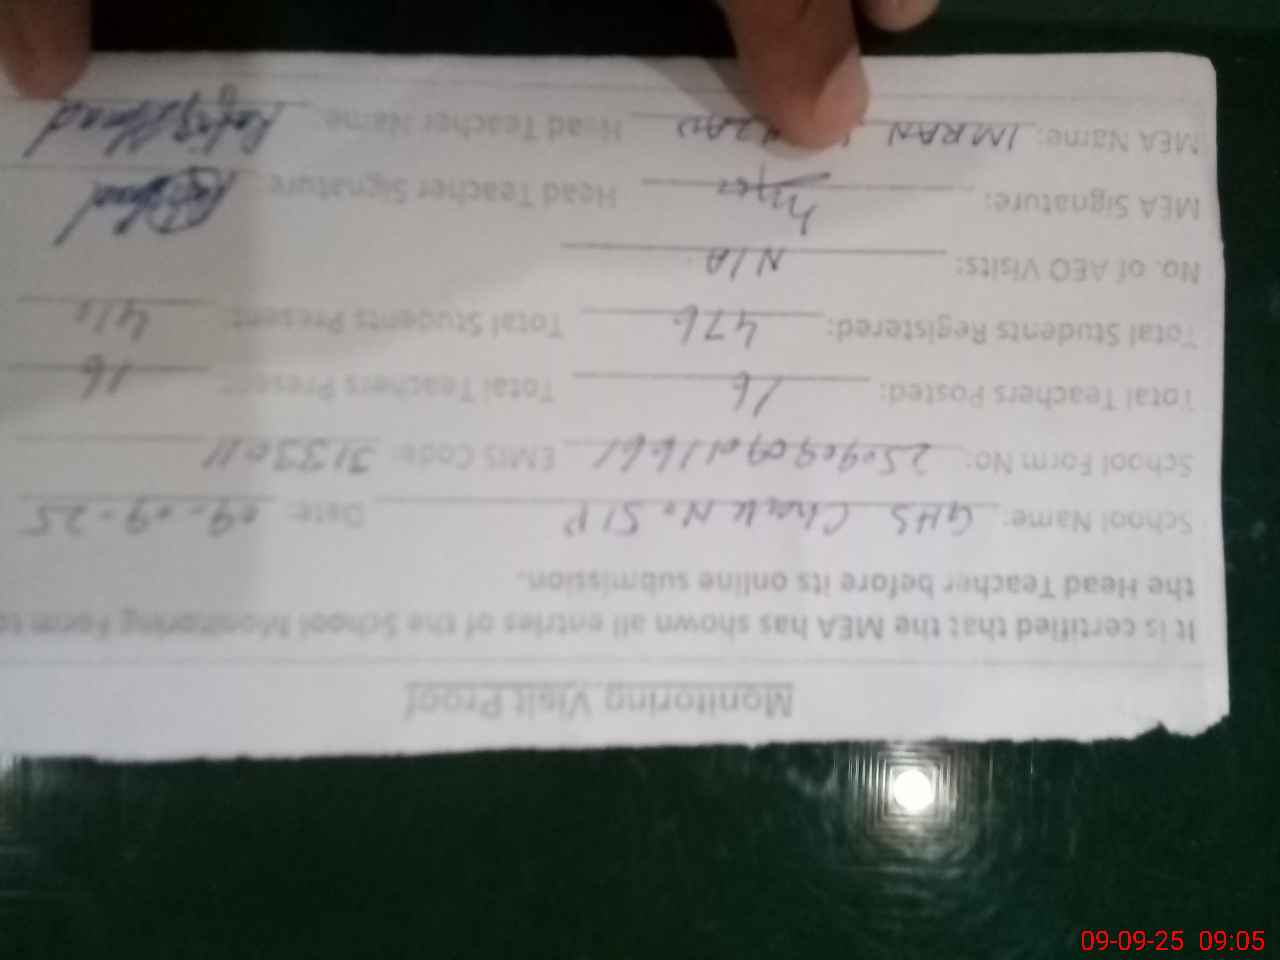 Monitoring Visit Proof
It is certified that the MEA has shown all entries of the School Monitoring Form to
the Head Teacher before its online submission.
School Name: GHS Chak No 51P Date: 09-09-25
School Form No: 2509090911661 EMIS Code: 3133011
Total Teachers Posted: 16 Total Teachers Present: 16
Total Students Registered: 476 Total Students Present: 411
No. of AEO Visits: N/A
MEA Signature: Head Teacher Signature:
MEA Name: IMRAN Head Teacher Name: Rafiq Ahmad
09-09-25 09:05